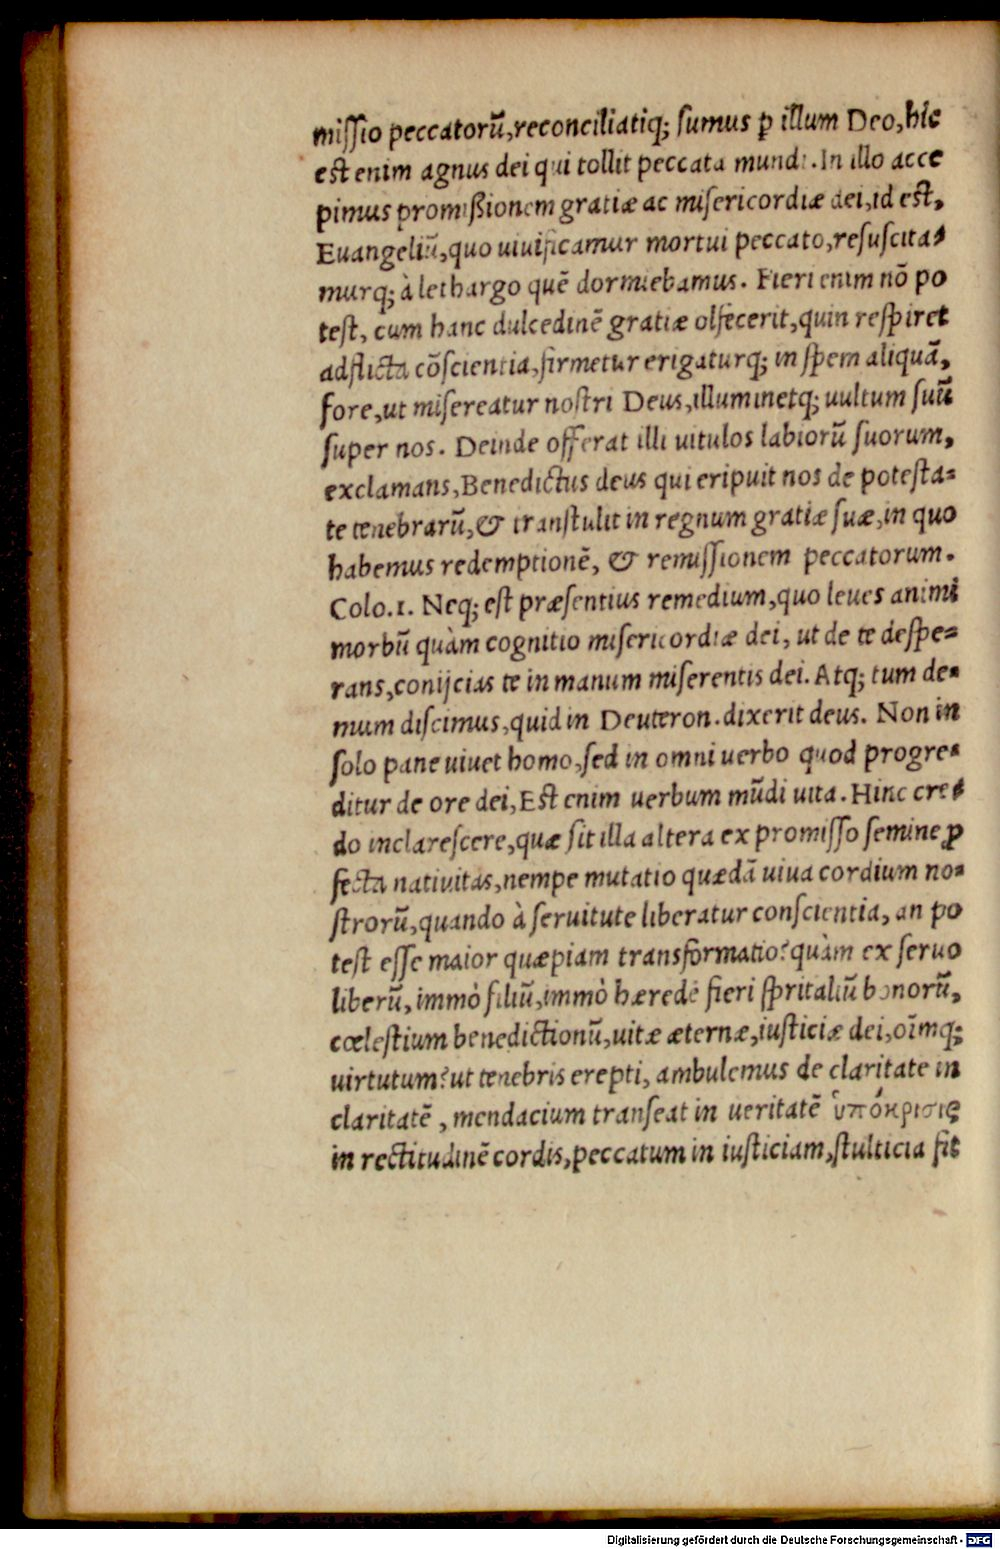 missio peccatorũ,reconciliatiq; sumus ꝑ illum Deo,hic
est enim agnus dei qui tollit peccata mundi.In illo acce
pimus promißionem gratiæ ac misericordiæ dei,id est,
Euangeliũ,quo uiuificamur mortui peccato,resuscita-
murq; à lethargo quẽ dormiebamus. Fieri enim nõ po
test, cum hanc dulcedinẽ gratiæ olfecerit,quin respiret
adflicta cõscientia,firmetur erigaturq; in spem aliquã,
fore,ut misereatur nostri Deus,illuminetq; uultum suũ
super nos. Deinde offerat illi uitulos labiorũ suorum,
exclamans,Benedictus deus qui eripuit nos de potesta-
te tenebrarũ,& transtulit in regnum gratiæ suæ,in quo
habemus redemptionẽ, & remissionem peccatorum.
Colo.1. Neq; est præsentius remedium,quo leues animi
morbũ quàm cognitio misericordiæ dei, ut de te despe-
rans,conijcias te in manum miserentis dei. Atq; tum de-
mum discimus,quid in Deuteron.dixerit deus. Non in
solo pane uiuet homo,sed in omni uerbo quod progre-
ditur de ore dei,Est enim uerbum mũdi uita. Hinc cre-
do inclarescere,quæ sit illa altera ex promisso semine ꝓ
fecta natiuitas,nempe mutatio quædã uiua cordium no-
strorũ,quando à seruitute liberatur conscientia, an po
test esse maior quæpiam transformatio?quàm ex seruo
liberũ, immò filiũ,immò hæredẽ fieri spritaliũ bonorũ,
cœlestium benedictionũ,uitæ æternæ,iusticiæ dei,oĩmq;
uirtutum?ut tenebris erepti, ambulemus de claritate in
claritatẽ, mendacium transeat in ueritatẽ ὑπόκρισις
in rectitudinẽ cordis,peccatum in iusticiam,stulticia fit
Digitalisierung gefördert durch die Deutsche Forschungsgemeinschaft - DFG